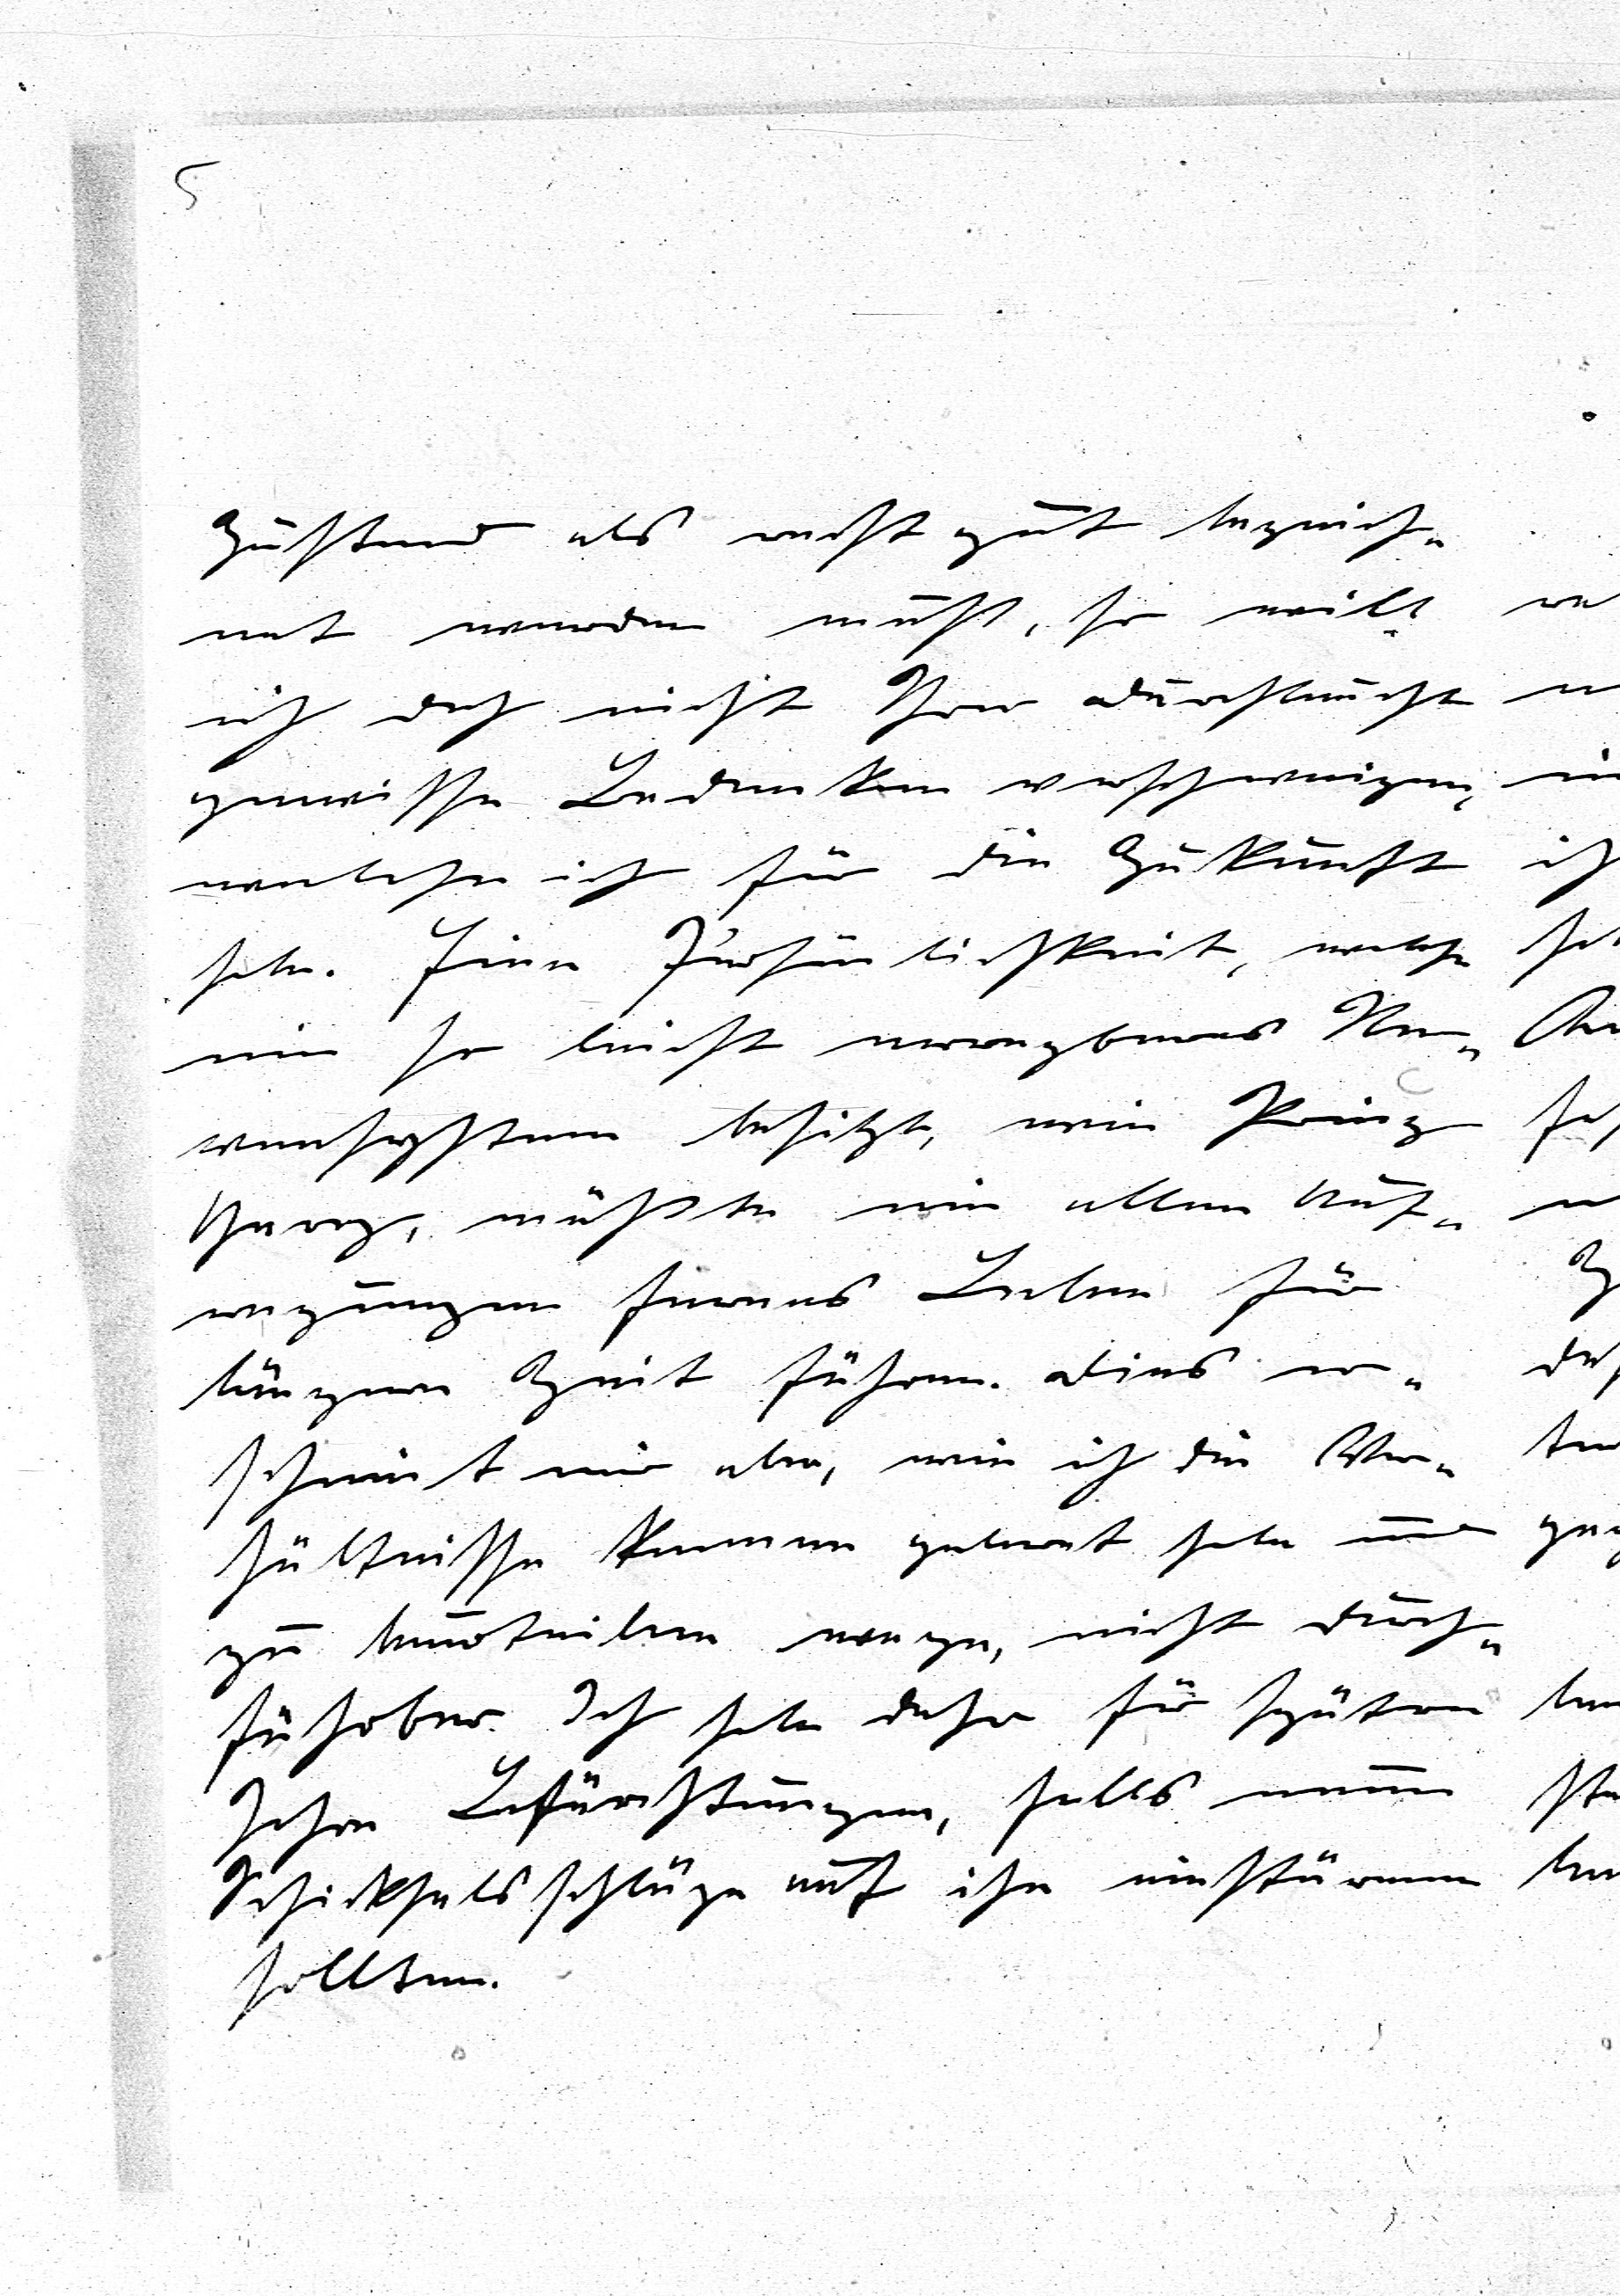 5
Zustand als recht gut bezeich-
net werden muß, so will
ich doch nicht Ihrer Durchlaucht
gewisse Bedenken verschweigen,
welche ich für die Zukunft
habe. Eine Persönlichkeit, welche
ein so leicht erregbares Ner-
vensystem besitzt, wie Prinz
Georg, müßte ein allen Auf-
regungen fernes Leben für
längere Zeit führen. Dies er-
scheint mir aber, wie ich die Ver-
hältnisse kennen gelernt habe und
zu beurteilen wage, nicht durch-
führbar. Ich habe daher für spätere
Jahre Befürchtungen, falls neue
Schicksalsschläge auf ihn einstürmen
sollten.